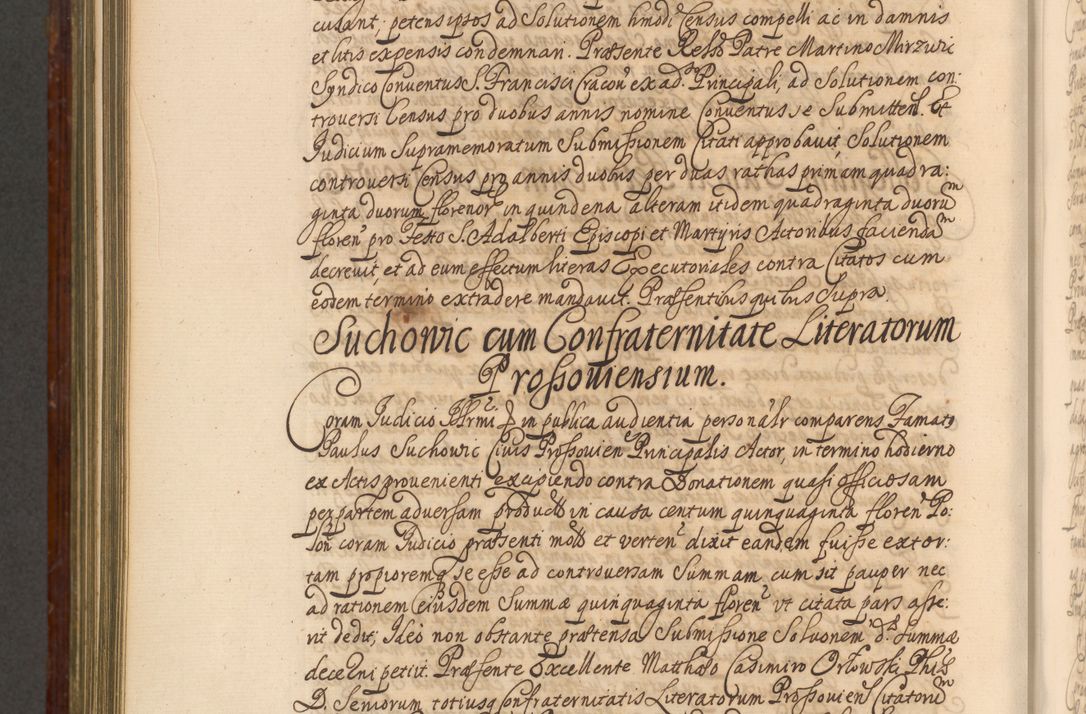 culant, petens ipsos ad Solutionem hmodi Census compelli ac in damnis
et litis expensis condemnari. Præsente Relso Patre Martino Mirzwic
Syndico Conventus S. Francisci Cracov ex ad Principali, ad Solutionem con:
troversi Census pro duobus annis nomine Conventus se Submitten. Et
Judicium Supramemoratum Submissionem Citati approbavit Solutionem
controversi Census pro annis duobus per duas rathas primam quadra:
ginta duorum florenor in quindena alteram itidem quadraginta duorũm
floren pro Festo S. Adalberti Episcopi et Martyris Actoribus faciendam
decrevit, et ad eum effectum literas Executoriales contra Citatos cum
eodem termino extradere mandavit. Præsentibus quibus Supra.
Suchowic cum Confraternitate Literatorum
Prossoviensium.
Coram Judicio in publica audientia personalr comparens Famats
Paulus Suchowic Civis Prossovien Principalis Actor, in termino hodierno
ex Actis provenienti excipiendo contra Donationem quasi officiosam
per partem adversam product in causa centum quinquaginta floren Po:
lon coram Judicio præsenti mott et verten dixit eandem fuisse extor:
tam propioremq se esse ad controversam Summam cum sit pauper nec
ad rationem eiusdem Summæ quinquaginta floren vt citata pars asse:
rit dedit; Ideo non obstante prætensa Submissione Soluonem ds Summæ
decerni petiit. Præsente Excellente Matthæo Casimiro Orłowski Phis
D. Seniorum totiusq Confraternitatis Literatorum Prossovien Citatorũm